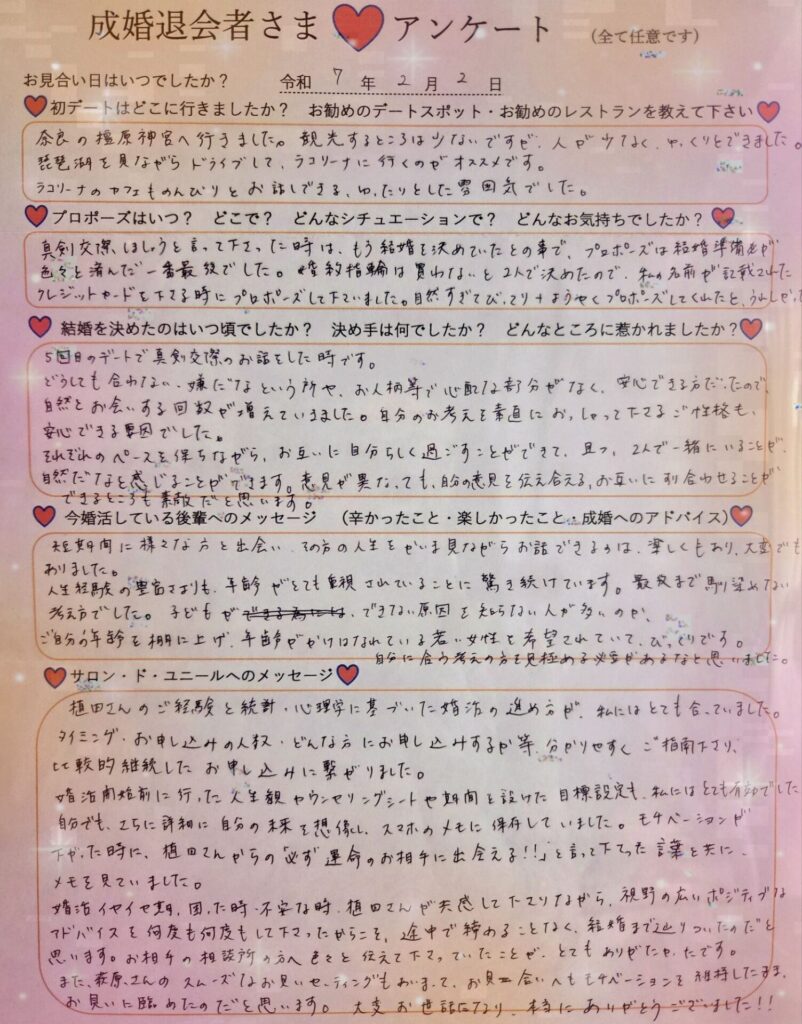 成婚退会者さま アンケート (全て任意です)
お見合い日はいつでしたか? 令和 7 年 2 月 2 日
初デートはどこに行きましたか? お勧めのデートスポット・お勧めのレストランを教えて下さい
奈良の橿原神宮へ行きました。観光するところは少ないですが、人が少なく、ゆっくりとできました。
琵琶湖を見ながらドライブして、ラコリーナに行くのがオススメです。
ラコリーナのカフェものんびりとお話しできる、ゆったりとした雰囲気でした。
プロポーズはいつ? どこで? どんなシチュエーションで? どんなお気持ちでしたか?
真剣交際、しましょうと言って下さった時は、もう結婚を決めていたとの事で、プロポーズは結婚準備が
色々と済んだ一番最後でした。婚約指輪は買わないと2人で決めたので、私の名前が記載された
クレジットカードを下さる時にプロポーズして下さいました。自然すぎてびっくり+ようやくプロポーズしてくれたと、うれしかった
結婚を決めたのはいつ頃でしたか? 決め手は何でしたか? どんなところに惹かれましたか?
5回目のデートで真剣交際のお話をした時です。
どうしても合わない、嫌だなという所や、お人柄等で心配な部分がなく、安心できる方だったので、
自然とお会いする回数が増えていきました。自分のお考えを素直におっしゃって下さるご性格も、
安心できる要因でした。
それぞれのペースを保ちながら、お互いに自分らしく過ごすことができて、且つ、2人で一緒にいることが、
自然だなと感じることができます。意見が異なっても、自分の意見を伝え合える、お互いにすり合わせることが
できるところも素敵だと思います。
今婚活している後輩へのメッセージ (辛かったこと・楽しかったこと・成婚へのアドバイス)
短期間に様々な方と出会い、その方の人生をかいま見ながらお話できるのは、楽しくもあり、大変でも
ありました。
人生経験の豊富さよりも、年齢がとても重視されていることに驚き続けています。最後まで馴り染めない
考え方でした。子どもが、できない原因を知らない人が多いのか、
ご自分の年齢を棚に上げ、年齢がかけはなれている若い女性を希望されていて、びっくりです。
自分に合う考えの方を見極める必要があるなと思いました。
サロン・ド・ユニールへのメッセージ
植田さんのご経験と統計・心理学に基づいた婚活の進め方が、私にはとても合っていました。
タイミング・お申し込みの人数・どんな方にお申し込みするか等、分かりやすくご指南下さり、
比較的継続したお申し込みに繋がりました。
婚活開始前に行った人生観カウンセリングシートや期間を設けた目標設定も、私にはとても有効でした
自分でも、さらに詳細に自分の未来を想像し、スマホのメモに保存していました。モチベーションが
下がった時に、植田さんからの「必ず運命のお相手に出会える!!」と言って下さった言葉と共に、
メモを見ていました。
婚活イヤイヤ期、困った時・不安な時、植田さんが共感して下さりながら、視野の広いポジティブな
アドバイスを何度も何度もして下さったからこそ、途中で諦めることなく、結婚まで辿りついたのだと
思います。お相手の相談所の方へ色々と伝えて下さっていたことが、とてもありがたかったです。
また、萩原さんのスムーズなお見合いセッティングもあいまって、お見合いへもモチベーションを維持したまま、
お見合いに臨めたのだと思います。大変お世話になり、本当にありがとうございました!!